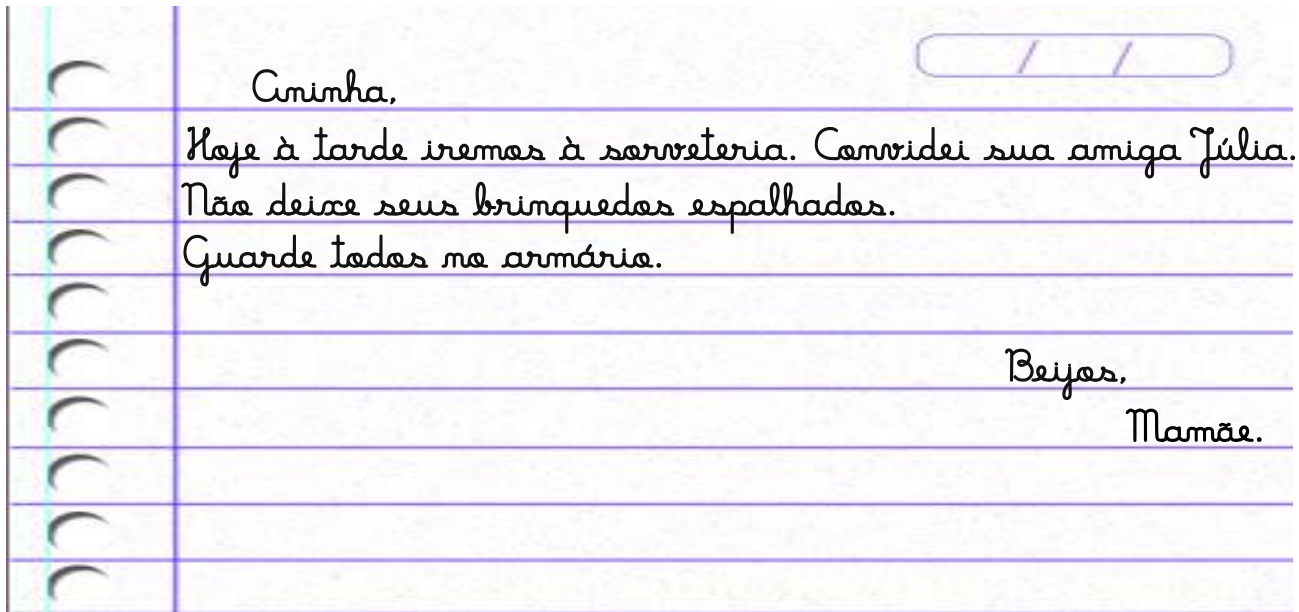 Aninha,
Hoje à tarde iremos à sorveteria. Convidei sua amiga Júlia.
Não deixe seus brinquedos espalhados.
Guarde todos no armário.
Beijos,
Mamãe.